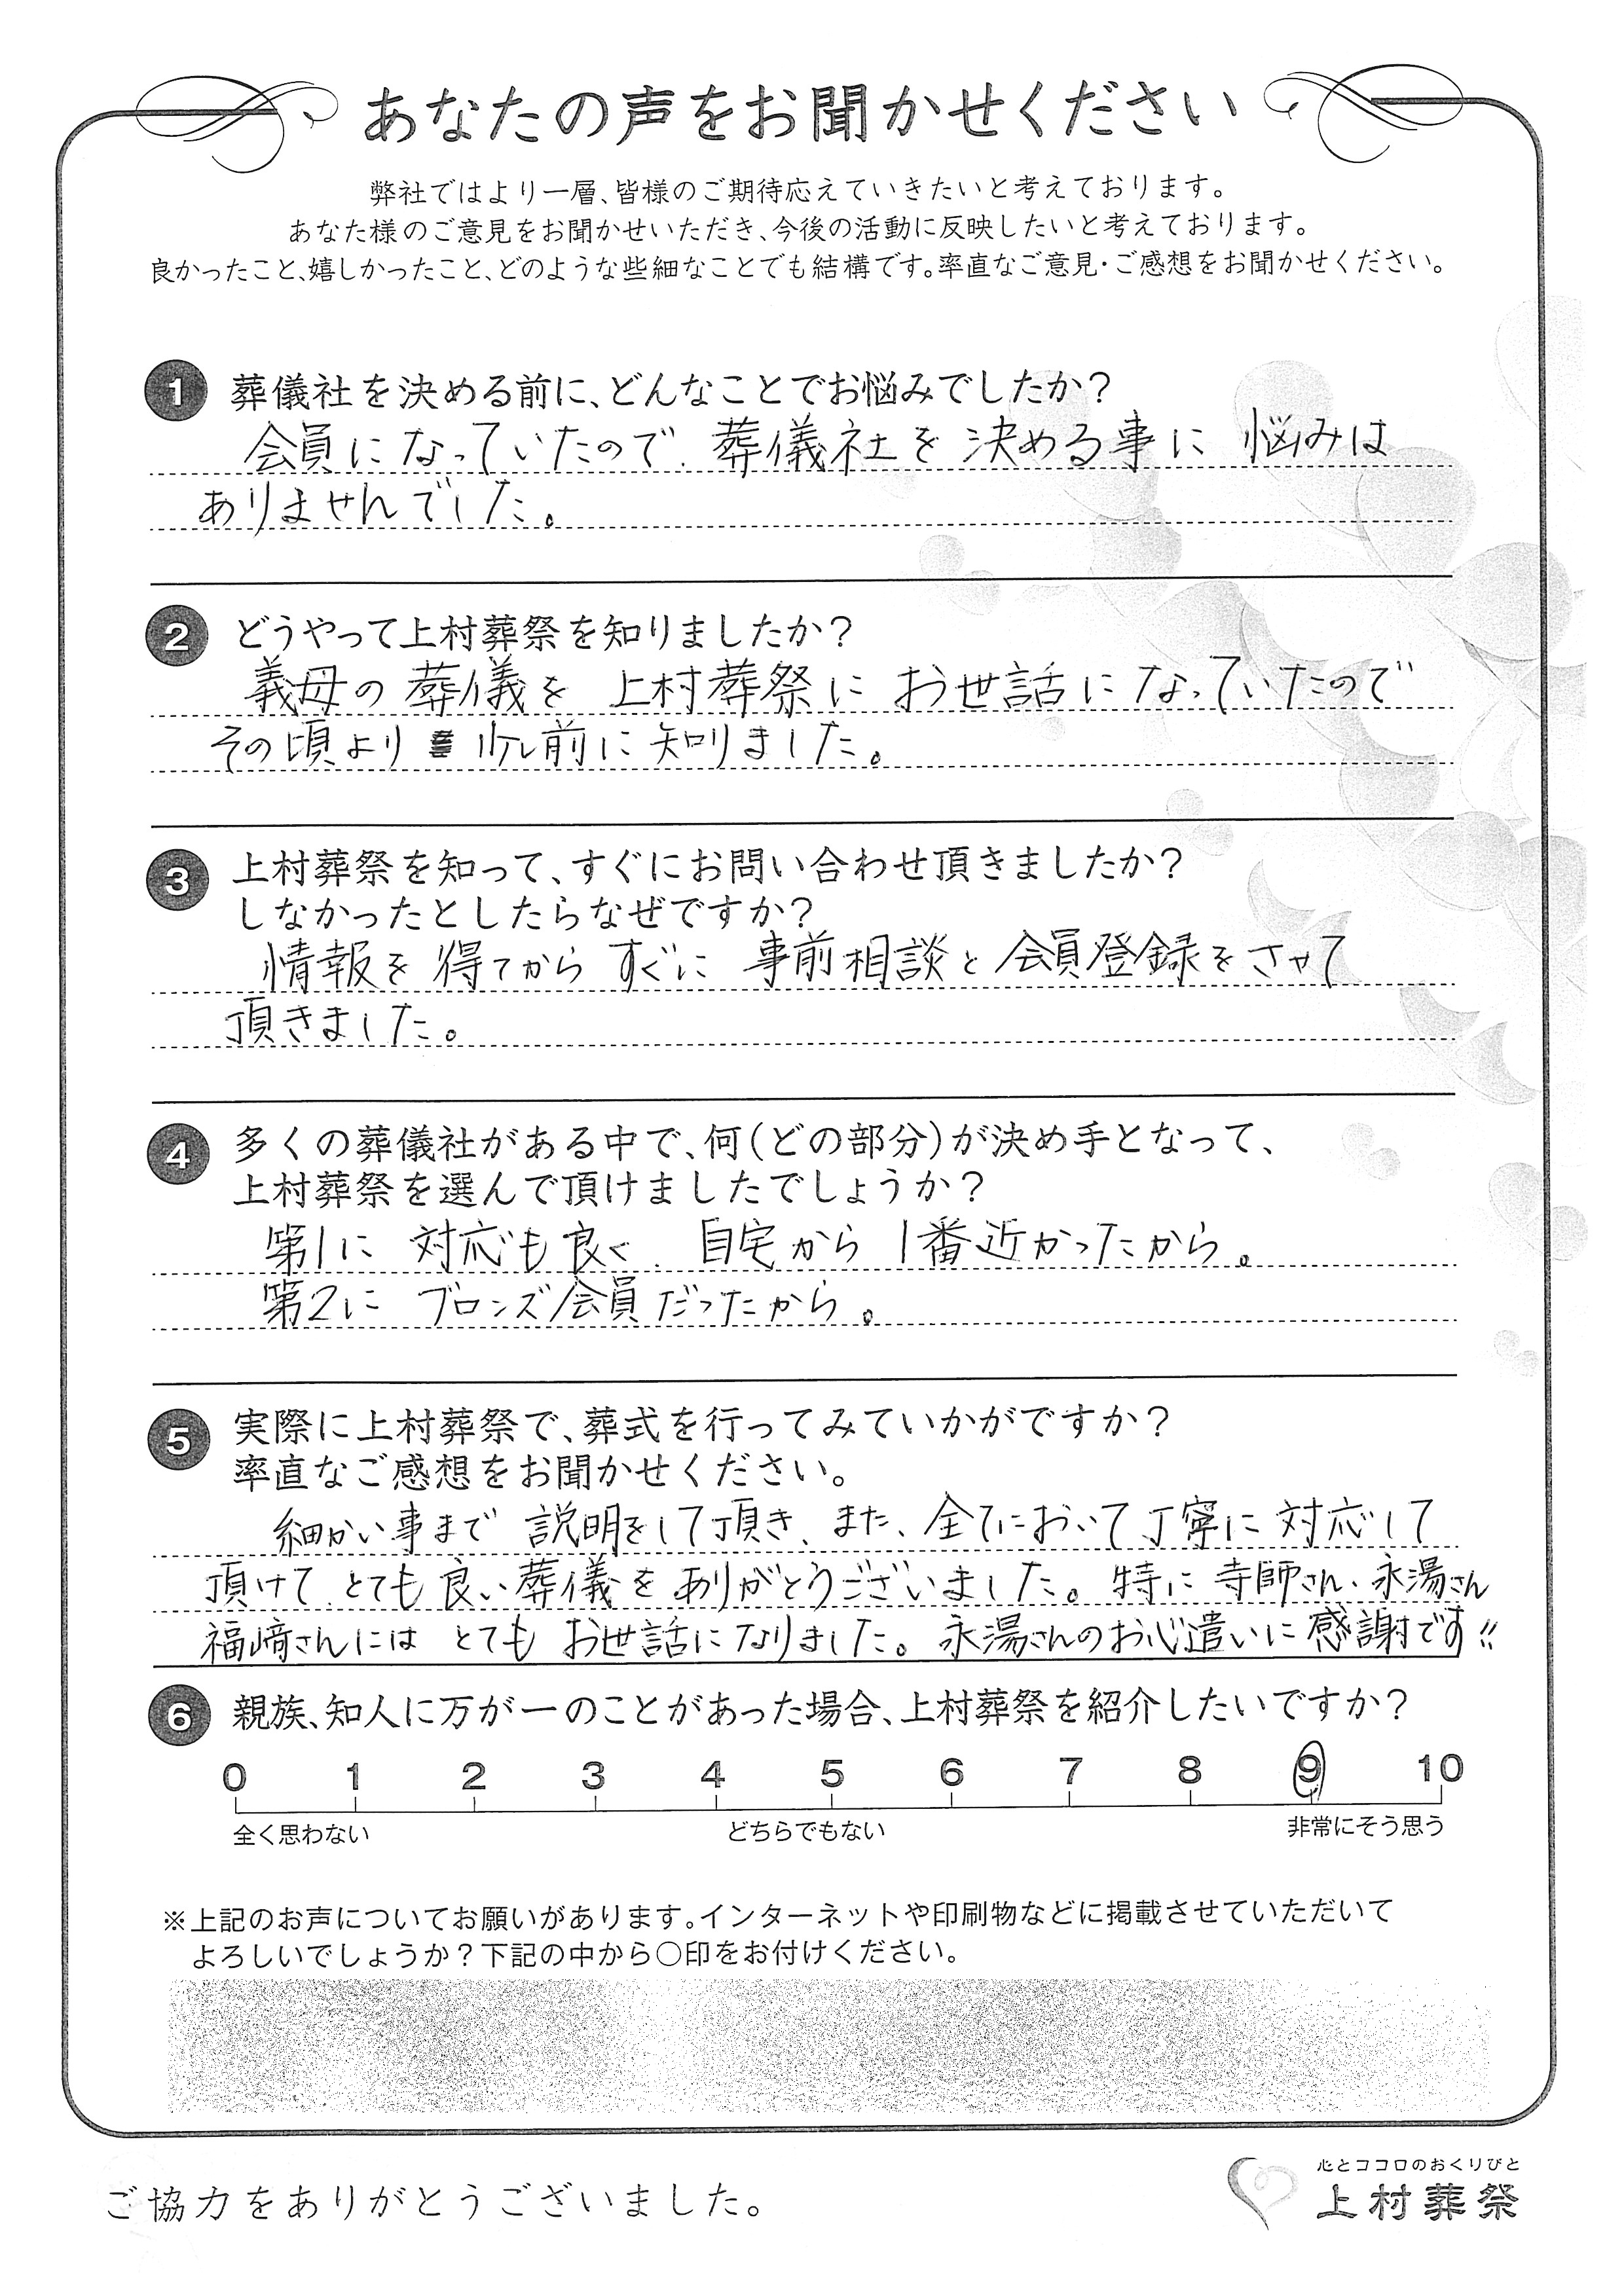 あなたの声をお聞かせください
弊社ではより一層、皆様のご期待応えていきたいと考えております。
あなた様のご意見をお聞かせいただき、今後の活動に反映したいと考えております。
良かったこと、嬉しかったこと、どのような些細なことでも結構です。率直なご意見・ご感想をお聞かせください。
1 葬儀社を決める前に、どんなことでお悩みでしたか？
会員になっていたので、葬儀社を決める事に悩みは
ありませんでした。
2 どうやって上村葬祭を知りましたか？
義母の葬儀を上村葬祭にお世話になっていたので
その頃より 少し前に知りました。
3 上村葬祭を知って、すぐにお問い合わせ頂きましたか？
しなかったとしたらなぜですか？
情報を得てからすぐに事前相談と会員登録をさせて
頂きました。
4 多くの葬儀社がある中で、何（どの部分）が決め手となって、
上村葬祭を選んで頂けましたでしょうか？
第1に 対応も良く、自宅から1番近かったから。
第2に ブロンズ会員だったから。
5 実際に上村葬祭で、葬式を行ってみていかがですか？
率直なご感想をお聞かせください。
細かい事まで説明をして頂き、また、全てにおいて丁寧に対応して
頂けて、とても良い葬儀をありがとうございました。特に寺師さん、永湯さん
福﨑さんにはとてもお世話になりました。永湯さんのお心遣いに感謝です!!
6 親族、知人に万が一のことがあった場合、上村葬祭を紹介したいですか？
0 1 2 3 4 5 6 7 8 9 10
全く思わない どちらでもない 非常にそう思う
※上記のお声についてお願いがあります。インターネットや印刷物などに掲載させていただいて
よろしいでしょうか？下記の中から○印をお付けください。
ご協力をありがとうございました。
心とココロのおくりびと
上村葬祭